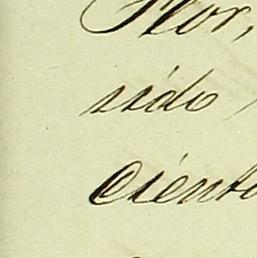 Flor,
sido
ciento